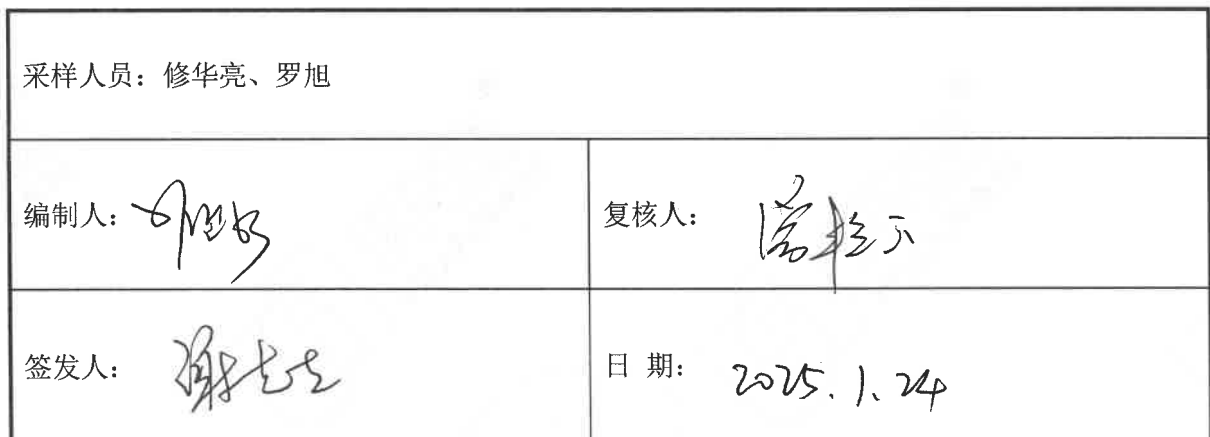 采样人员：修华亮、罗旭
编制人：
复核人：
签发人：
日 期：2025.1.24